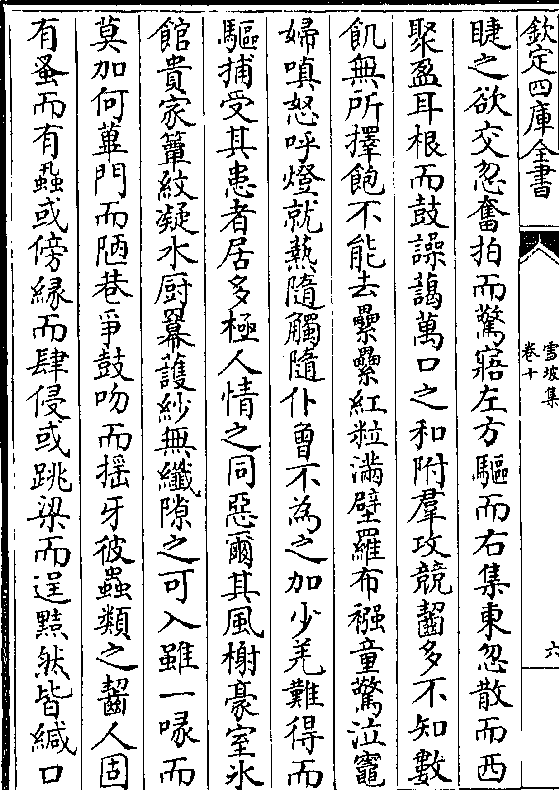 欽定四庫全書
雪坡集
卷十
六
睫之欲交忽奮拍而驚寤左方驅而右集東忽散而西
聚盈耳根而鼓譟藹萬口之和附羣攻競齧多不知數
飢無所擇飽不能去纍纍紅粒滿壁羅布襁童驚泣竈
婦嗔怒呼燈就爇隨觸隨仆曾不為之加少羌難得而
驅捕受其患者居多極人情之同惡爾其風榭豪室氷
館貴家簟紋凝水厨羃護紗無纖隙之可入雖一喙而
莫加何蓽門而陋巷爭鼓吻而摇牙彼蟲類之齧人固
有蚤而有蝨或傍緣而肆侵或跳梁而逞黠然皆緘口